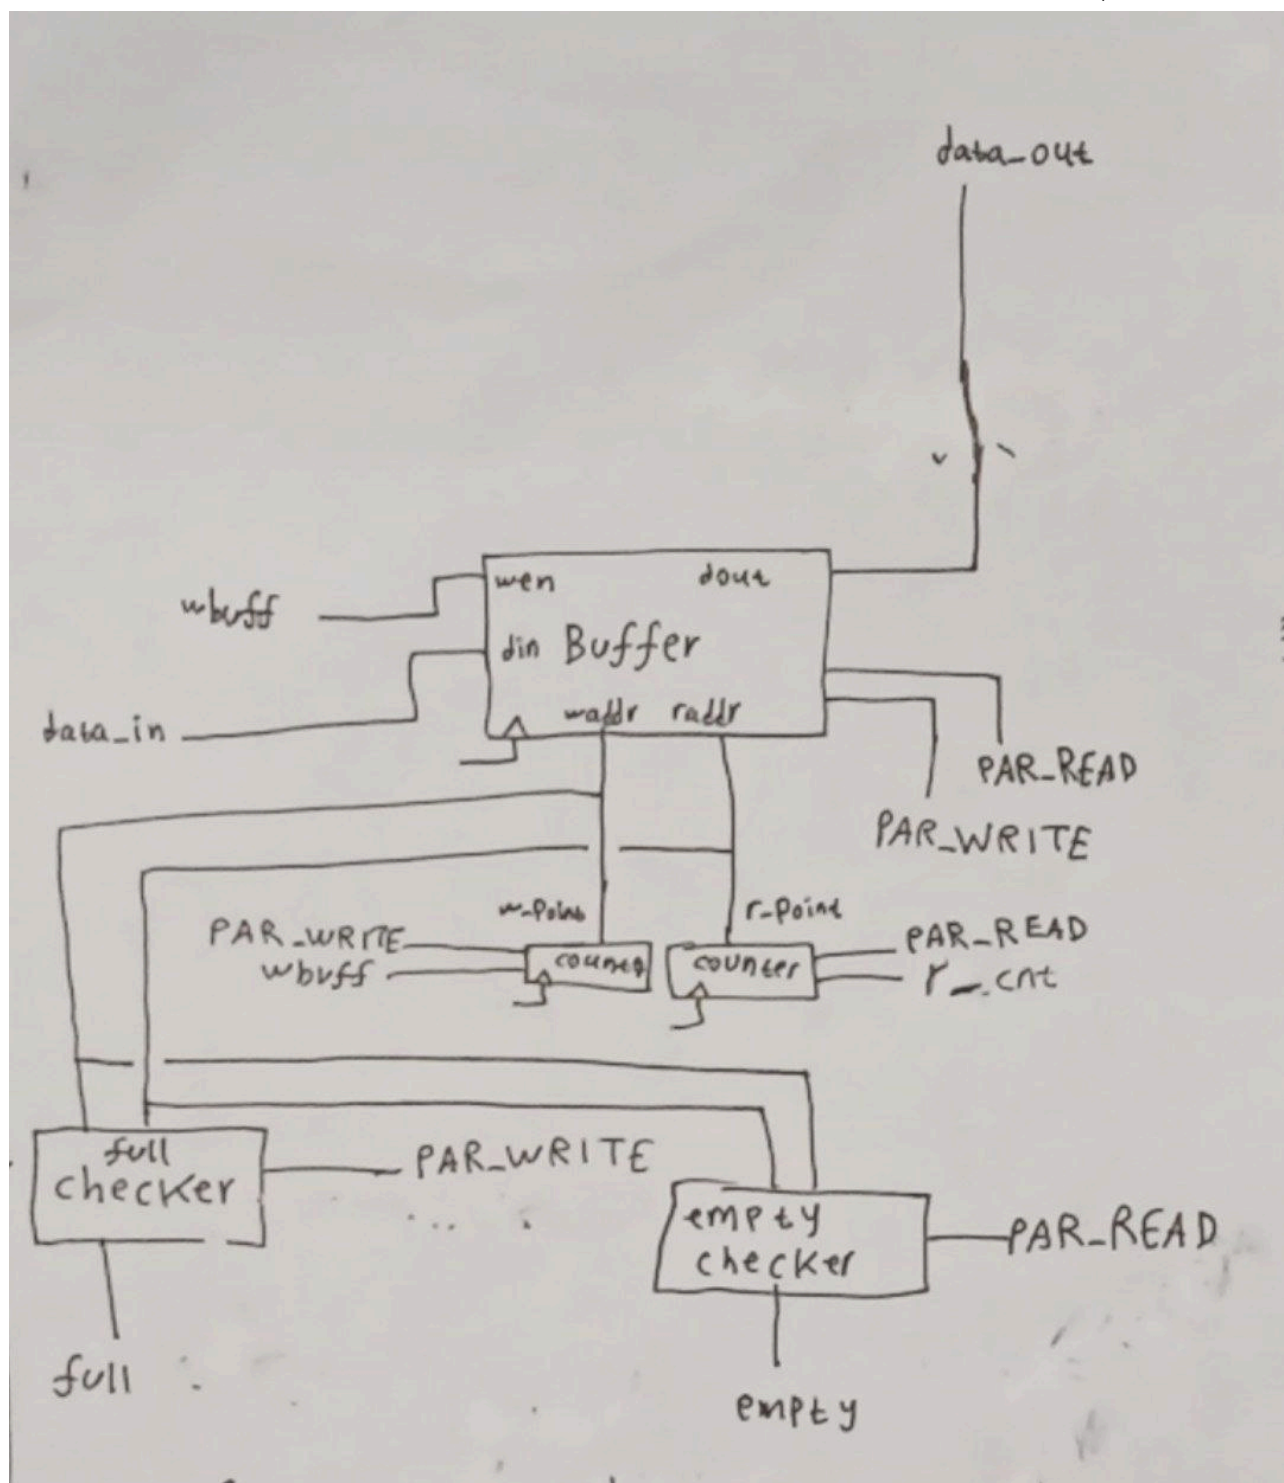 data_out
wen
dout
wbuff
din Buffer
waddr raddr
data_in
PAR_READ
PAR_WRITE
w-point
r-point
PAR_WRITE
wbuff
counter
PAR_READ
r_cnt
full
checker
PAR_WRITE
empty
checker
PAR_READ
full
empty